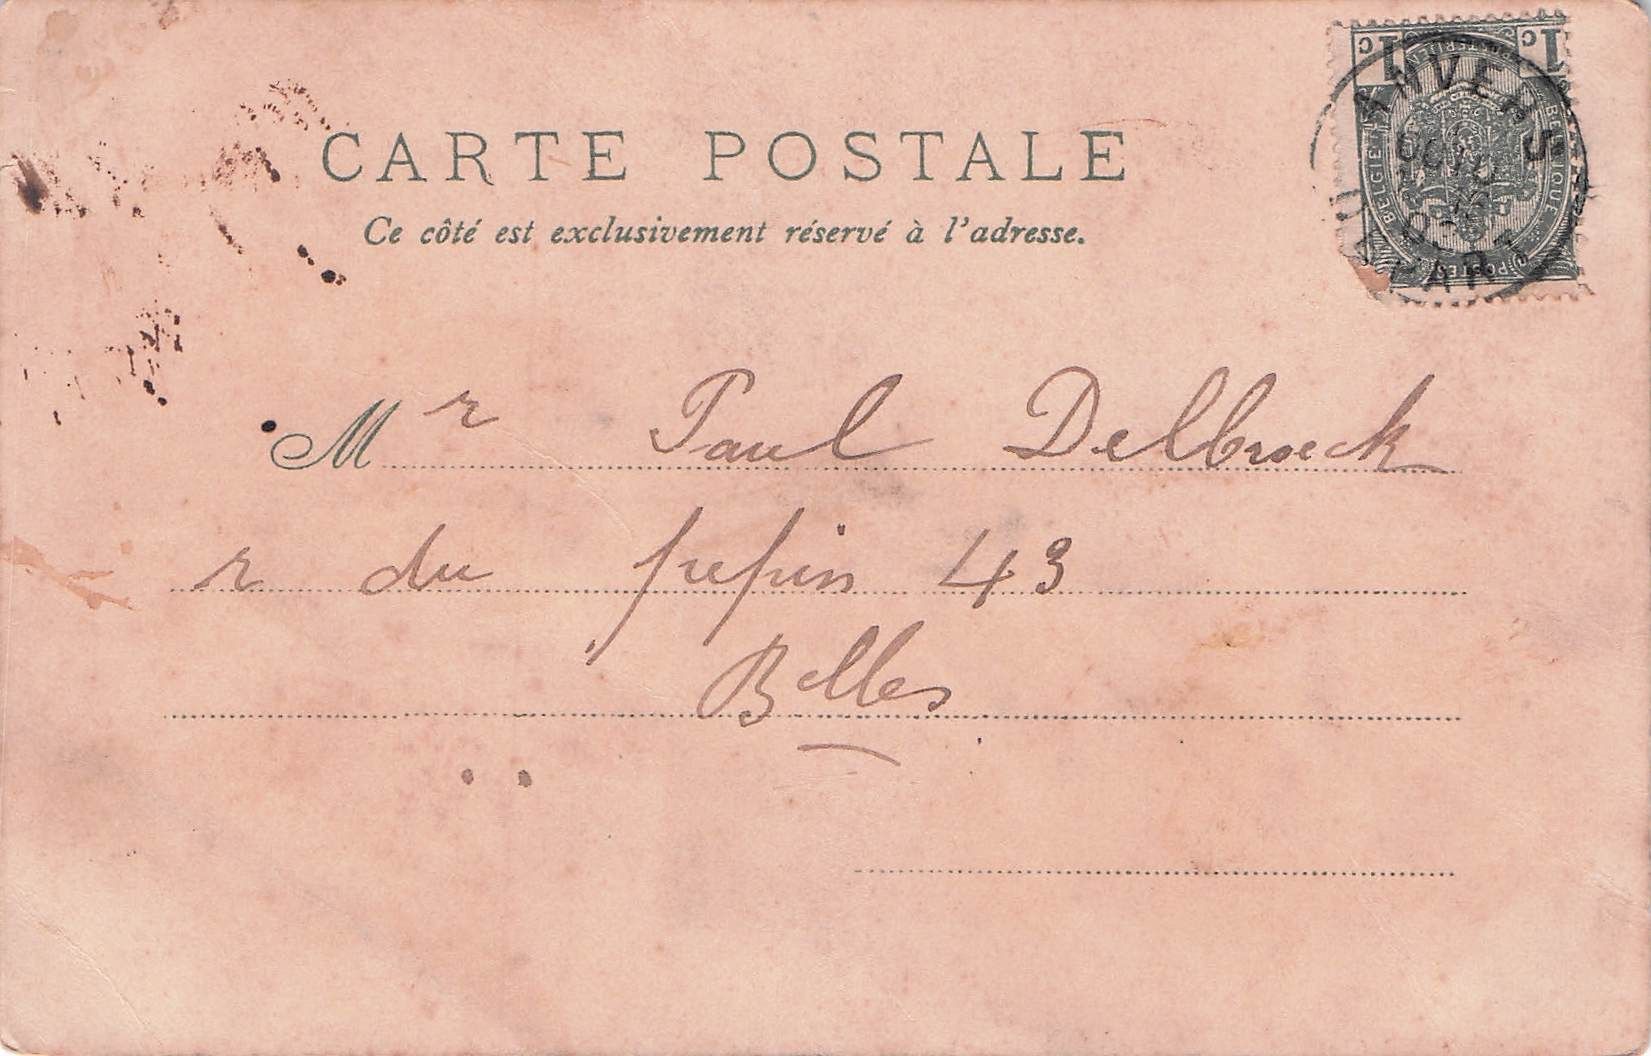 CARTE POSTALE
Ce côté est exclusivement réservé à l'adresse.
1c 1c
BELGIE BELGIQUE
POSTES
ANVERS
Mr Paul Delbroeck
r du pepin 43
Belles